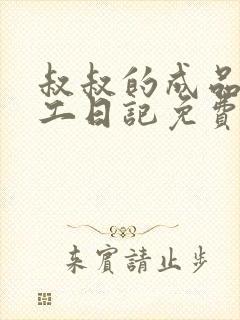 叔叔的成品
工日記免費
来賓請止步